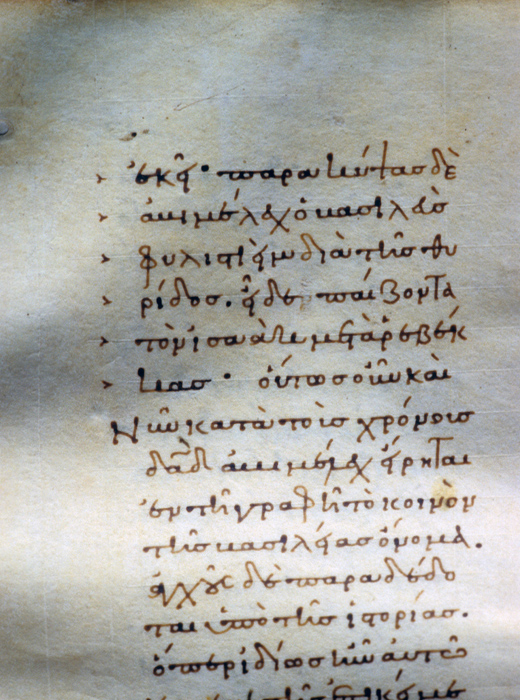 > ἐκεῖ· παρακύψας δὲ
> ἀβιμέλεχ ὁ βασιλεὺς
> φυλιστιεὶμ διὰ τῆς θυ
> ρίδος. εἶδε παίζοντα
> τὸν ἰσαὰκ μετὰ ῥεβέκ
> κας· οὕτως οὖν καὶ
Νῦν κατὰ τοὺς χρόνους
δαδ ἀβιμέλεχ εἴρηται
ἐν τῆ γραφῆ τὸ κοινὸν
τῆς βασιλείας ὄνομα.
ἀγχοῦς δὲ παραδέδο
ται ὑπὸ τῆς ἱστορίας.
ὅπερ ἰδίως ἦν αὐτῶ